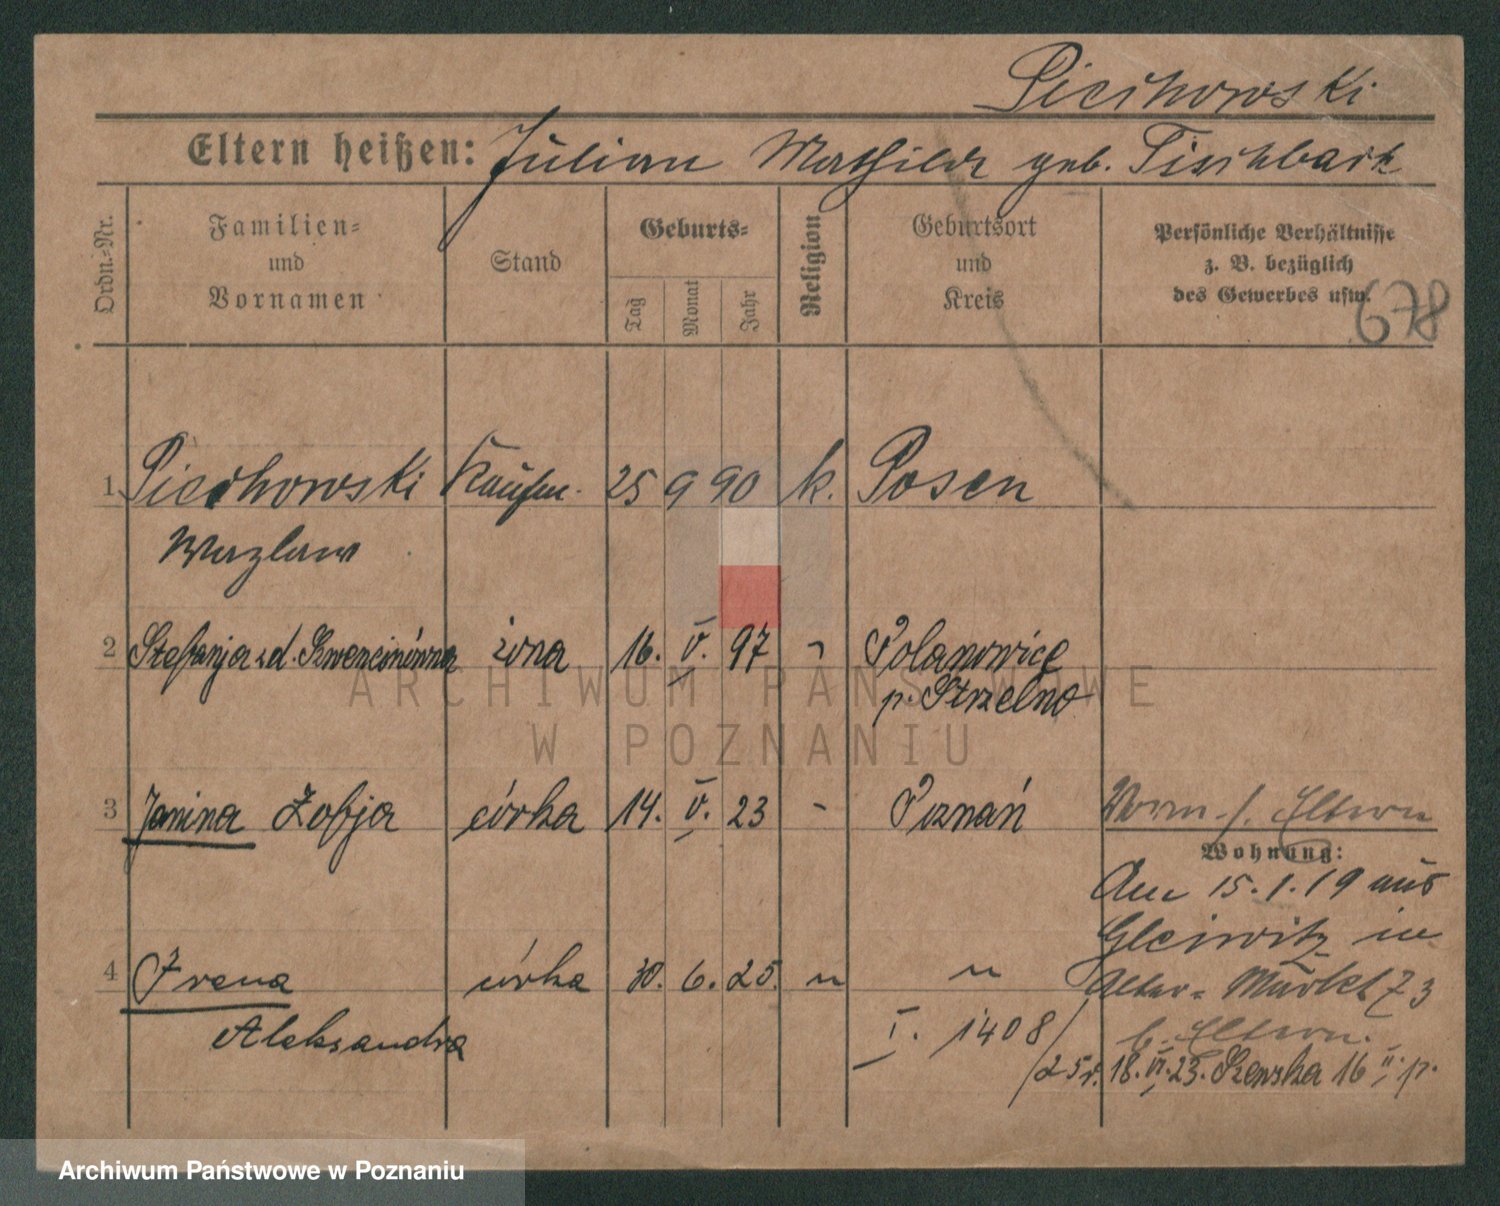 Piechowski
Eltern heißen: Julian Mathilde geb. Tischbark
Ordn.-Nr. Familien- und Vornamen Stand Geburts- Tag Monat Jahr Religion Geburtsort und Kreis Persönliche Verhältnisse z. B. bezüglich des Gewerbes usw.
678
1 Piechowski Kaufm. 25 9 90 k. Posen
Wazlaw
2 Stefanja z d. żona 16. V. 97 " Polanowice
p. Strzelno
ARCHIWUM PAŃSTWOWE
W POZNANIU
3 Janina Zofja córka 14. V. 23 " Poznań Eltern
Wohnung:
Am 15.1.19 aus
Gleiwitz in
4 Irena córka 30. 6. 25. " " Alter-Markt 73
Aleksandra
b. Eltern.
I. 1408/25r. 18. VI. 23. Szewska 16 II. p.
Archiwum Państwowe w Poznaniu